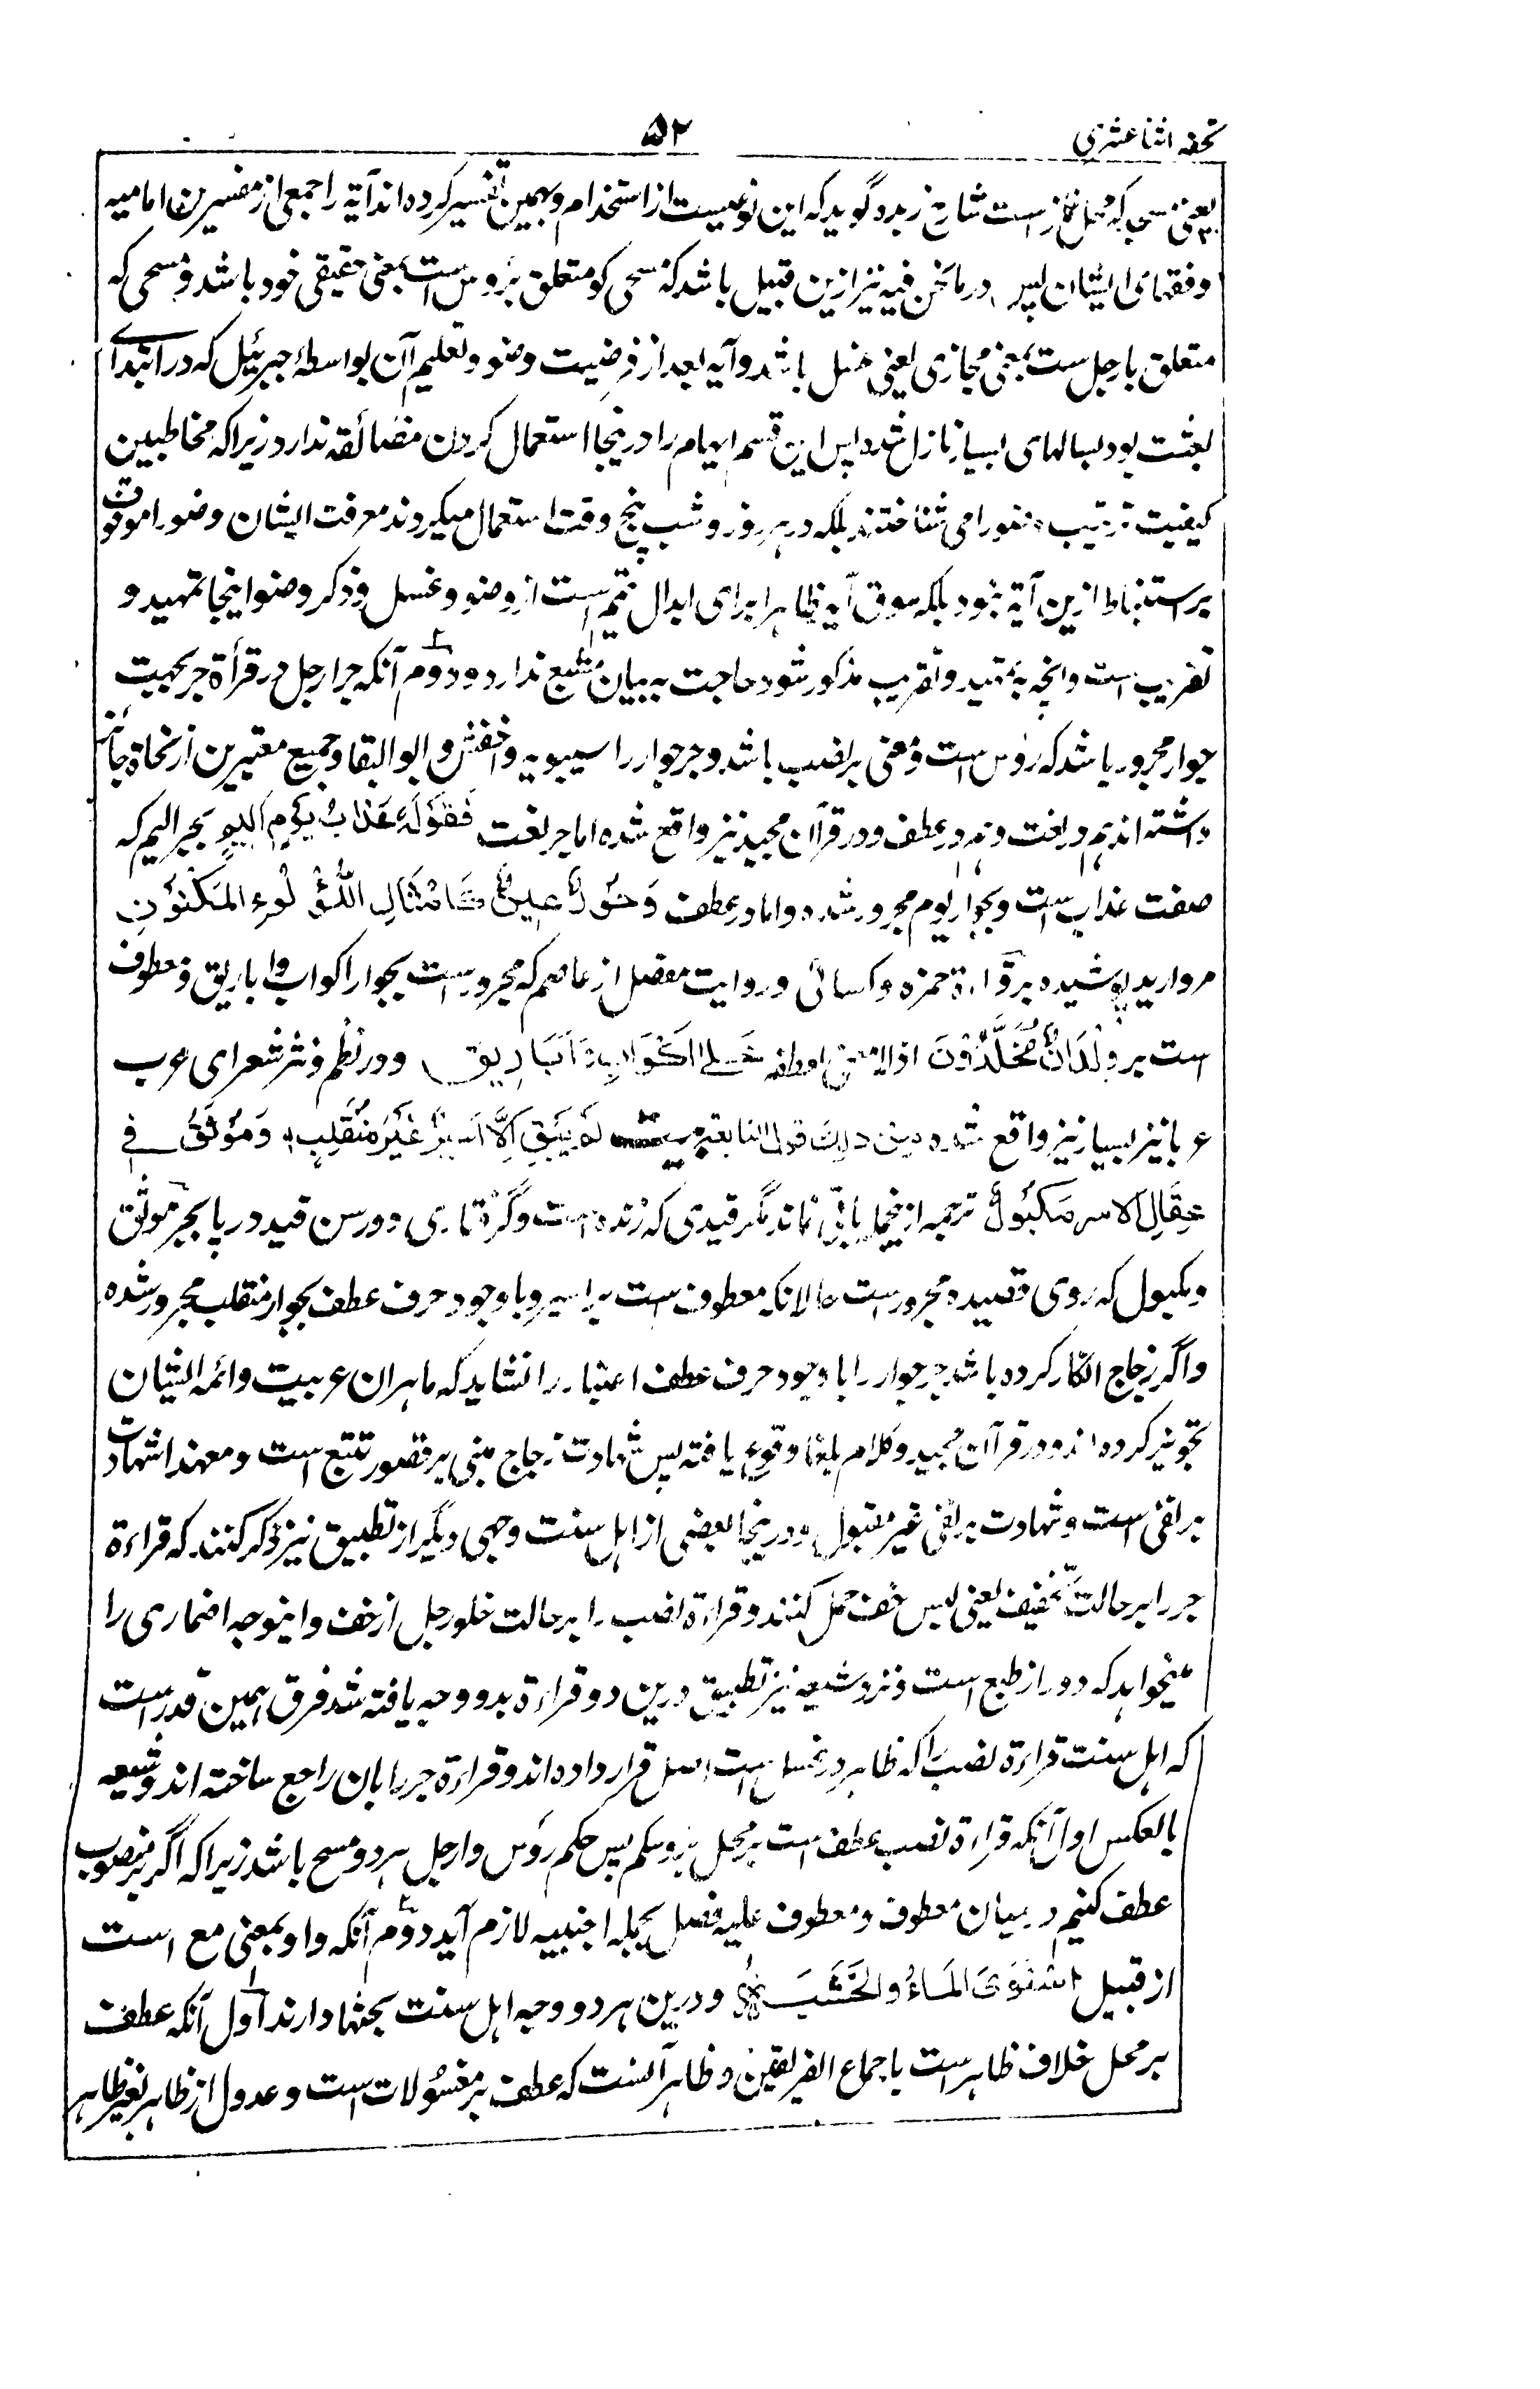 تحفه اثنا عشری
۵۲
یعنی مسجد که محل نماز است شارح زبده گوید که این نوعیست از استخدام و بهمین تفسیر کرده اند آیه را جمعی از مفسرین امامیه
و فقهای ایشان پس در ما نحن فیه نیز ازین قبیل باشد که مسحی کو متعلق برؤس است بمعنی حقیقی خود باشد و مسحی که
متعلق بارجل ست بمعنی مجازی یعنی غسل باشد و آیه بعد از فرضیت وضو و تعلیم آن بواسطهٔ جبرئیل که در ابتدای
بعثت بود بسالهای بسیار نازل شده پس این قسم ابهام را درینجا استعمال کردن مضائقه ندارد زیرا که مخاطبین
کیفیت ترتیب وضو را می شناختند بلکه در هر روز و شب پنج وقت استعمال میکردند معرفت ایشان وضو را موقوف
بر استنباط ازین آیة نبود بلکه سوق آیه ظاهرا برای ابدال تیمم است از وضو و غسل و ذکر وضو اینجا تمهید و
تقریب است و آنچه به تمهید و تقریب مذکور شود حاجت به بیان مشبع ندارد و دوم آنکه جر ارجل در قرأة جر بجهت
جوار مجرور باشد که رؤس است و معنی بر نصب باشد و جر جوار را سیبویه و اخفش و ابو البقا و جمیع معتبرین از نحاة جائز
داشته اند هم در نعت و هم در عطف و در قرآن مجید نیز واقع شده اما در نعت فَقَوْلُهُ عَذَابُ یَوْمٍ اَلِیْمٍ بجر الیم که
صفت عذاب است و بجوار یوم مجرور شده و اما در عطف وَحُوْرٌ عِیْنٌ کَاَمْثَالِ اللُّؤْلُوءِ المَکْنُوْنِ
مروارید پوشیده بر قراءة حمزه و کسائی و روایت مفضل از عاصم که مجرور است بجوار اکواب و اباریق و معطوف
است بر وِلْدَانٌ مُخَلَّدُوْنَ اذ لا معنی لعطفه علی اَکْوَابٍ وَّاَبَارِیْقَ و در نظم و نثر شعرای عرب
عربا نیز بسیار نیز واقع شده من ذلک قول النابغه لَمْ یَبْقَ اِلَّا اَسِیْرٌ غَیْرُ مُنْقَلِبٍ وَمُوْثَقٍ فِی
عِقَالِ الاسرِ مَکْبُوْلٍ ترجمه از نخجا باقی نماند مگر قیدی که زنده است و گرفتاری در رسن قید در پا بجر موثق
و مکبول که روی قصیده مجرور است حالانکه معطوف است بر اسیر و با وجود حرف عطف بجوار منقلب مجرور شده
و اگر زجاج انکار کرده باشد جر جوار را با وجود حرف عطف اعتبار را نشاید که ماهران عربیت و ائمه ایشان
تجویز کرده اند و در قرآن مجید و کلام بلغا وقوع یافته پس شهادت زجاج مبنی بر قصور تتبع است و معهذا شهادت
بر نفی است و شهادت بر نفی غیر مقبول و درینجا بعضی از اهل سنت وجهی دیگر از تطبیق نیز ذکر کنند که قراءة
جر را بر حالت تخفیف یعنی لبس خف حمل کنند و قراءة نصب را بر حالت خلو رجل از خف و اینوجه اضماری را
میخواهد که دور از طبع است و نزد شیعه نیز تطبیق درین دو قراءة بدو وجه یافته شد فرق همین قدر است
که اهل سنت قراءة نصب را که ظاهر در غسل است اصل قرار داده اند و قراءة جر را بان راجع ساخته اند و شیعه
بالعکس اول آنکه قراءة نصب عطف است بر محل برؤسکم پس حکم رؤس و ارجل هر دو مسح باشد زیرا که اگر بر منصوب
عطف کنیم در میان معطوف و معطوف علیه فصل بجمله اجنبیه لازم آید دوم آنکه واو بمعنی مع است
از قبیل اسْتَوَی المَاءُ وَالخَشَبَةَ و درین هر دو وجه اهل سنت بحثها دارند اول آنکه عطف
بر محل خلاف ظاهر است باجماع الفریقین و ظاهر آنست که عطف بر مغسولات است و عدول از ظاهر بغیر ظاهر